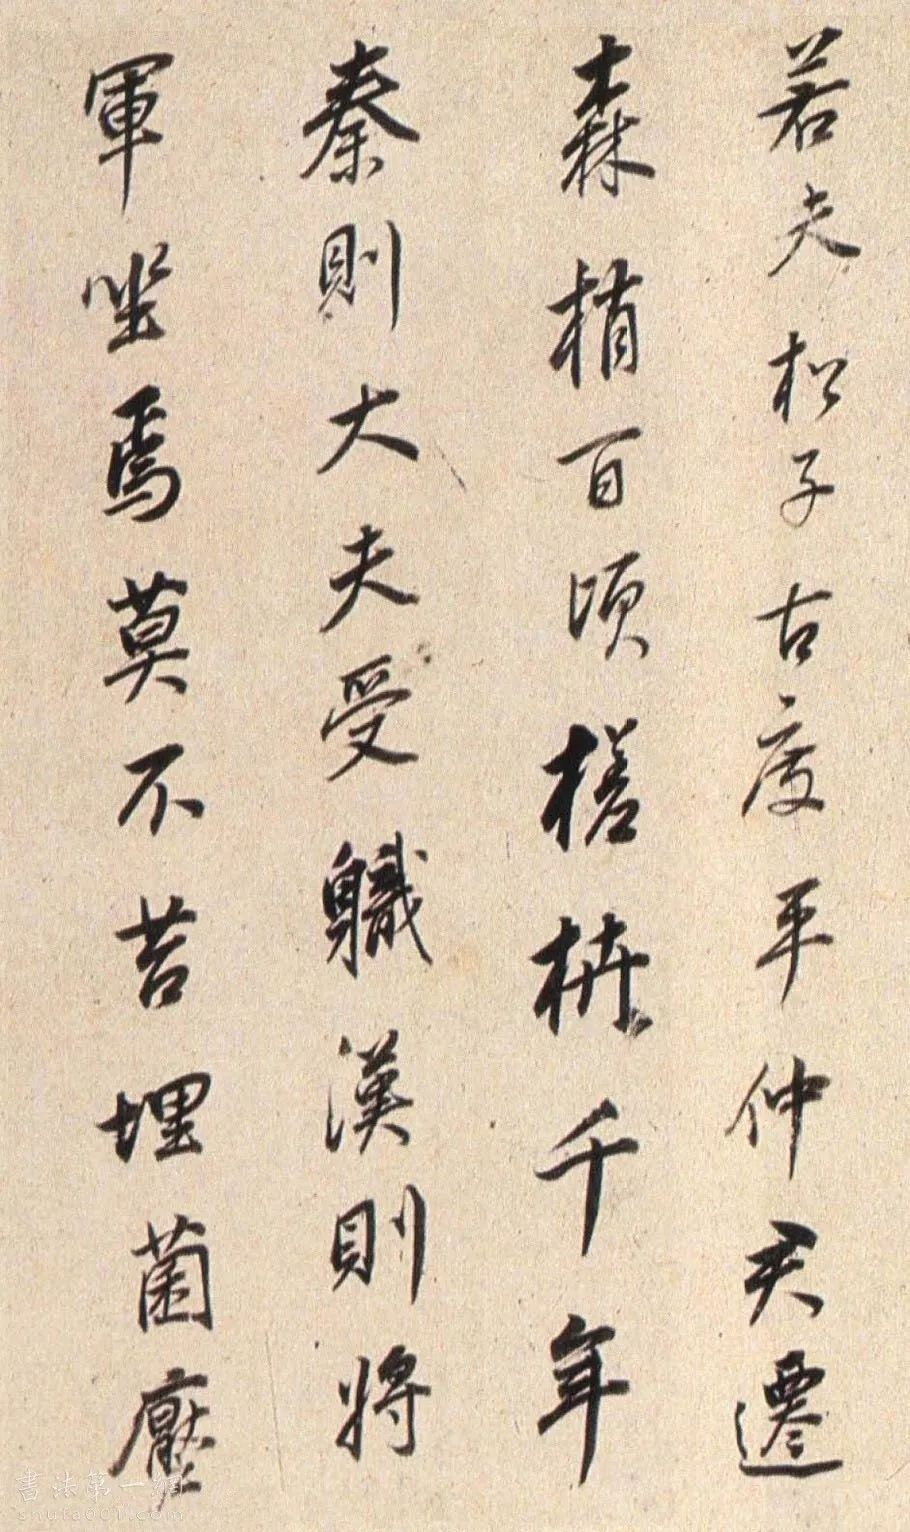 若夫松子古度平仲君遷
森梢百頃槎枿千年
秦則大夫受軄漢則將
軍坐焉莫不苔埋菌壓
書法第一網
shufa001.com